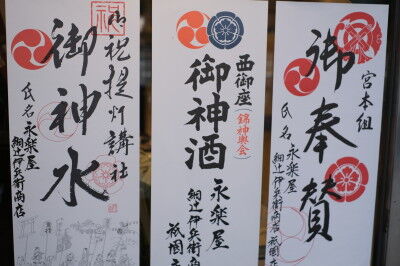 宮本組
御奉賛
氏名 永楽屋
細辻伊兵衛商店
祇園
西御座
(錦神輿会)
御神酒
永楽屋
細辻伊兵衛商
祇園
祝
御祝提灯講社
御神水
氏名 永楽屋
細辻伊兵衛商店